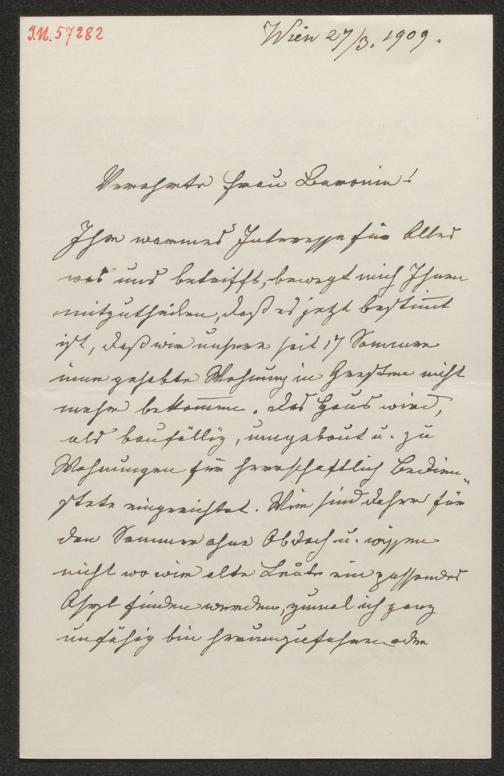 J.N. 57282
Wien 27/3. 1909.
Verehrte Frau Baronin!
Ihr warmes Interesse für Alles
was uns betrifft, bewegt mich Ihnen
mitzutheilen, daß es jetzt bestimt
ist, daß wir unsere seit 17 Sommer
inne gehabte Wohnung in nicht
mehr bekommen. Das Haus wird,
als baufällig, umgebaut u. zu
Wohnungen für herrschaftlich Bedien-
stete eingerichtet. Wir sind daher für
den Sommer ohne Obdach u. wissen
nicht wo wir alte Leute ein passendes
Asyl finden werden, zumal ich ganz
unfähig bin herumzufahren oder